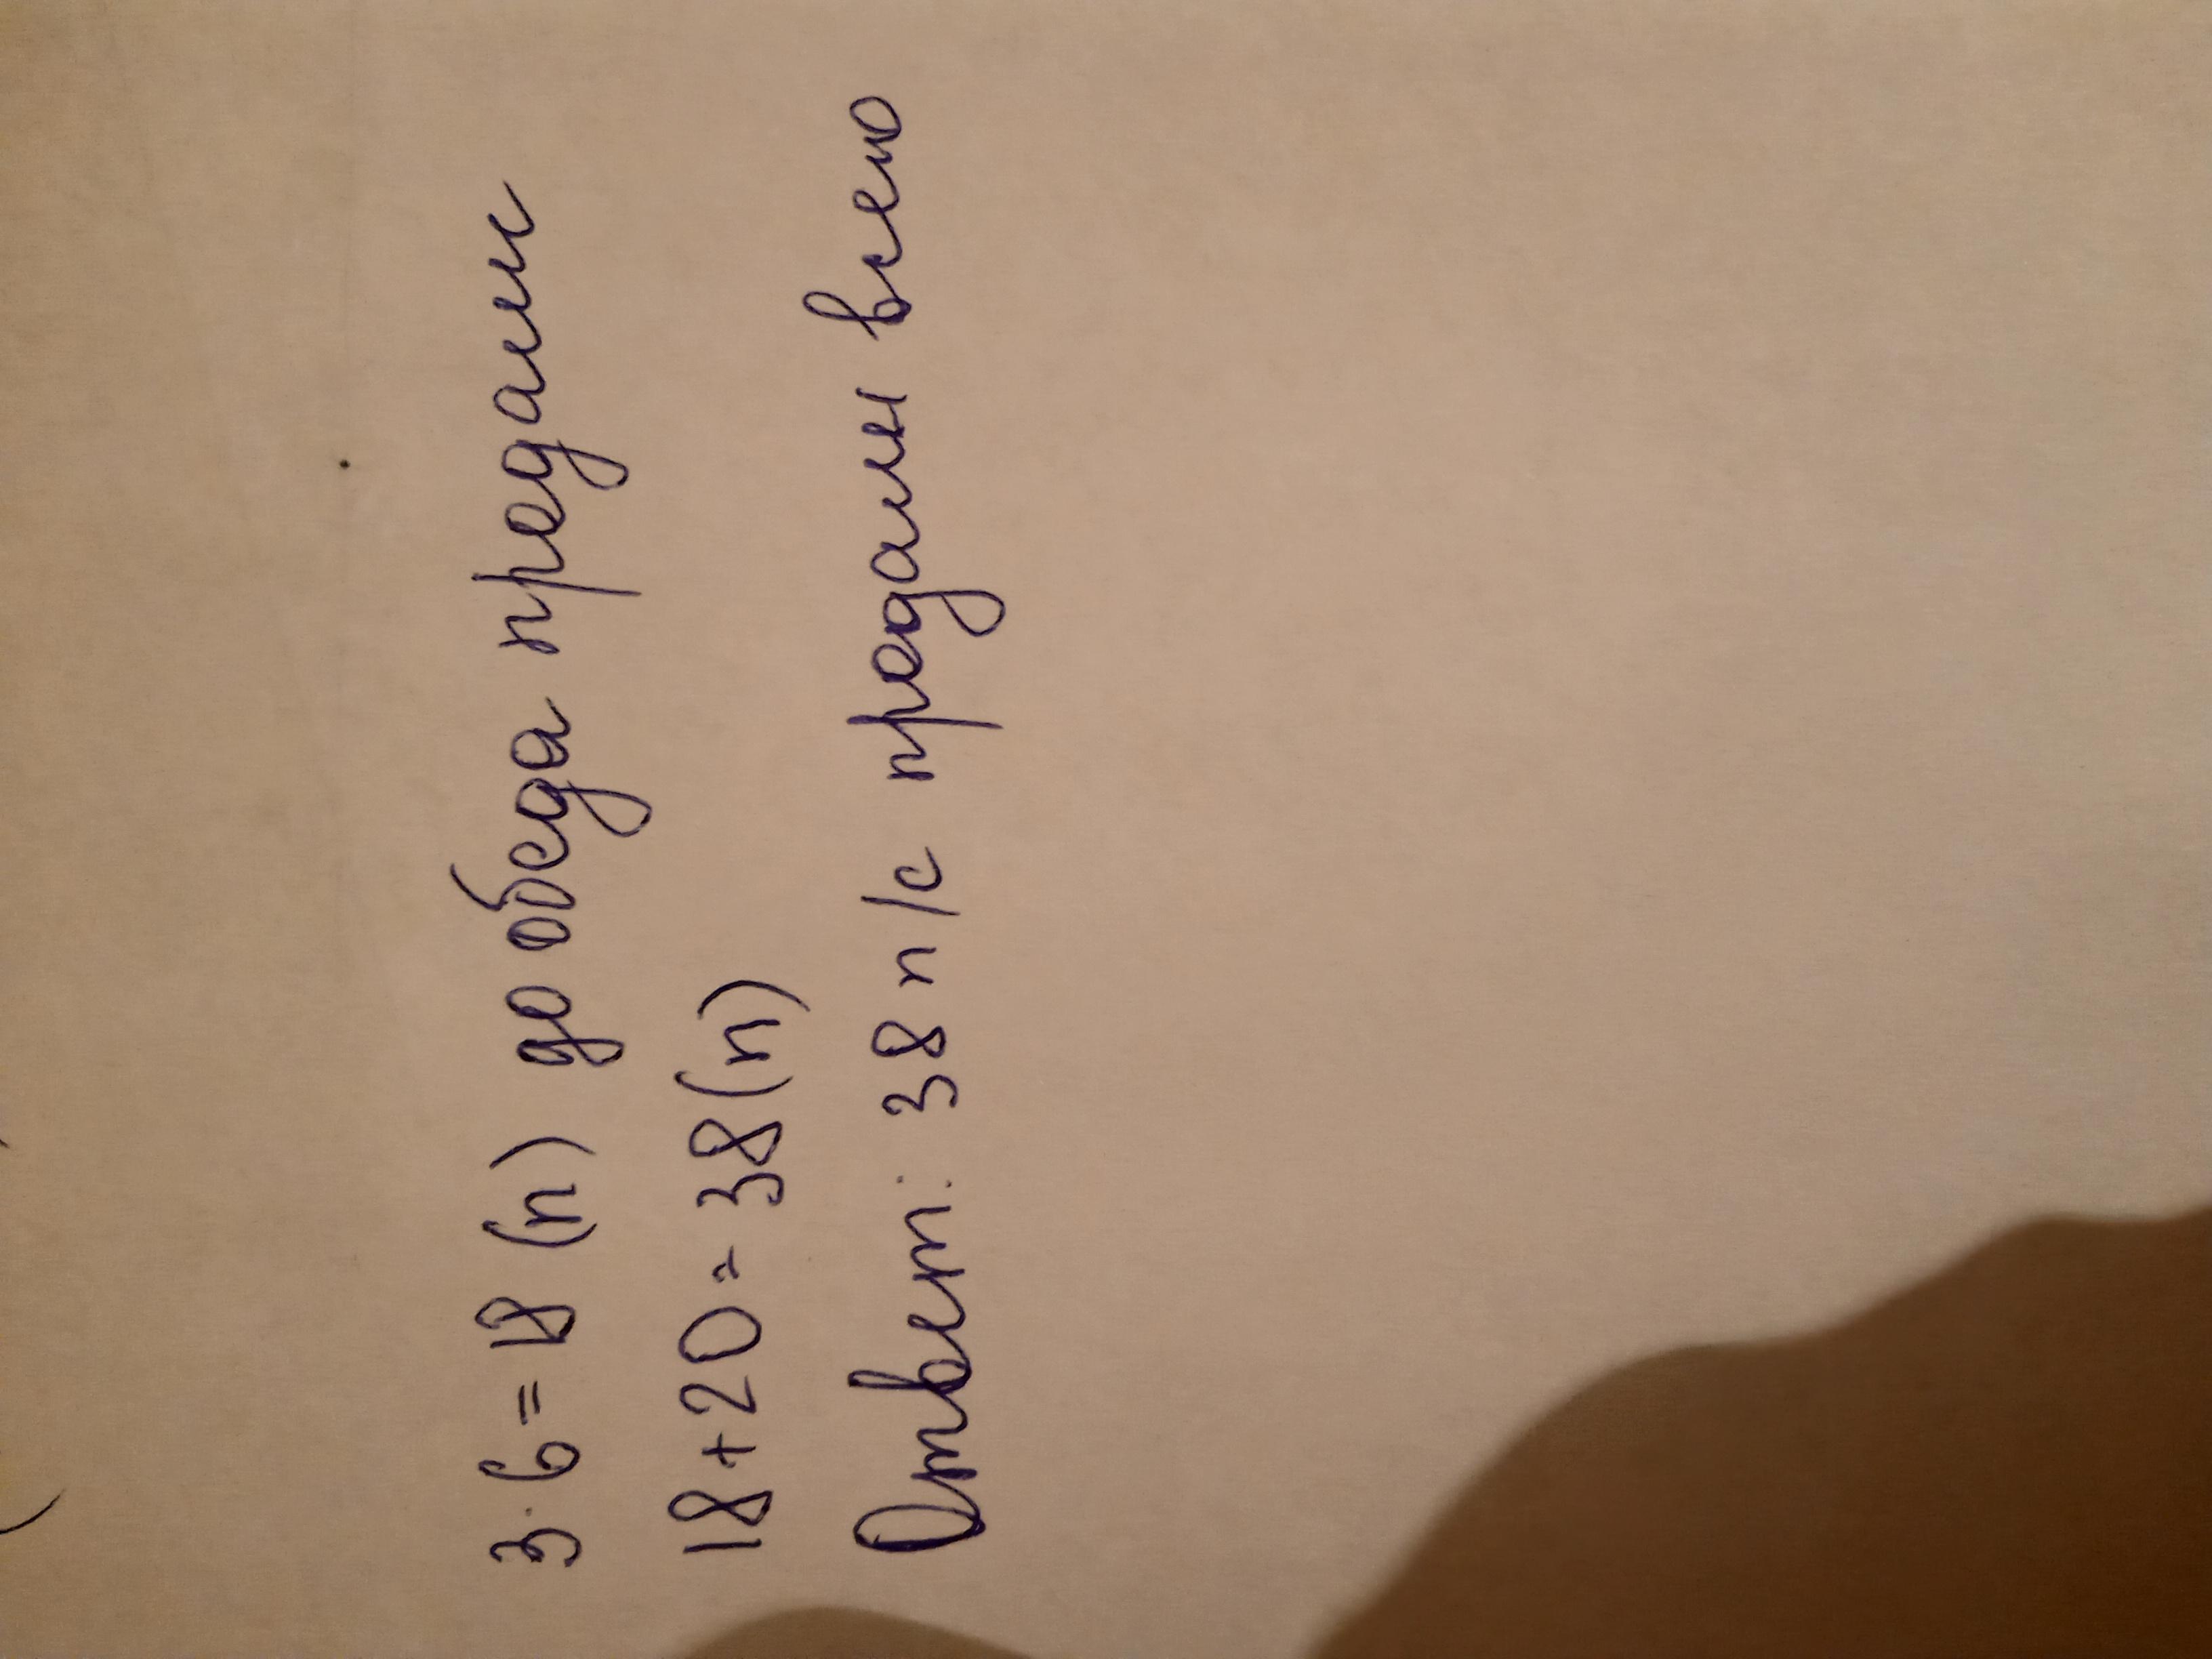 3·6=18 (п) до обеда продали
18+20=38(п)
Ответ: 38 п/с продали всего